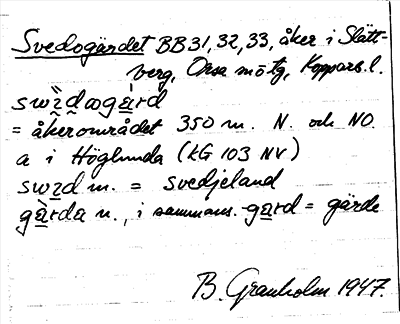 Svedogärdet BB31, 32, 33, åker i Slätt-
berg, Orsa mötg, Koppars. l.
= åkerområdet 350 m. N. och NO.
a i Höglunda (KG 103 NV)
swed m. = svedjeland
gärda n., i sammans. -gard = gärde
B. Granholm 1947.